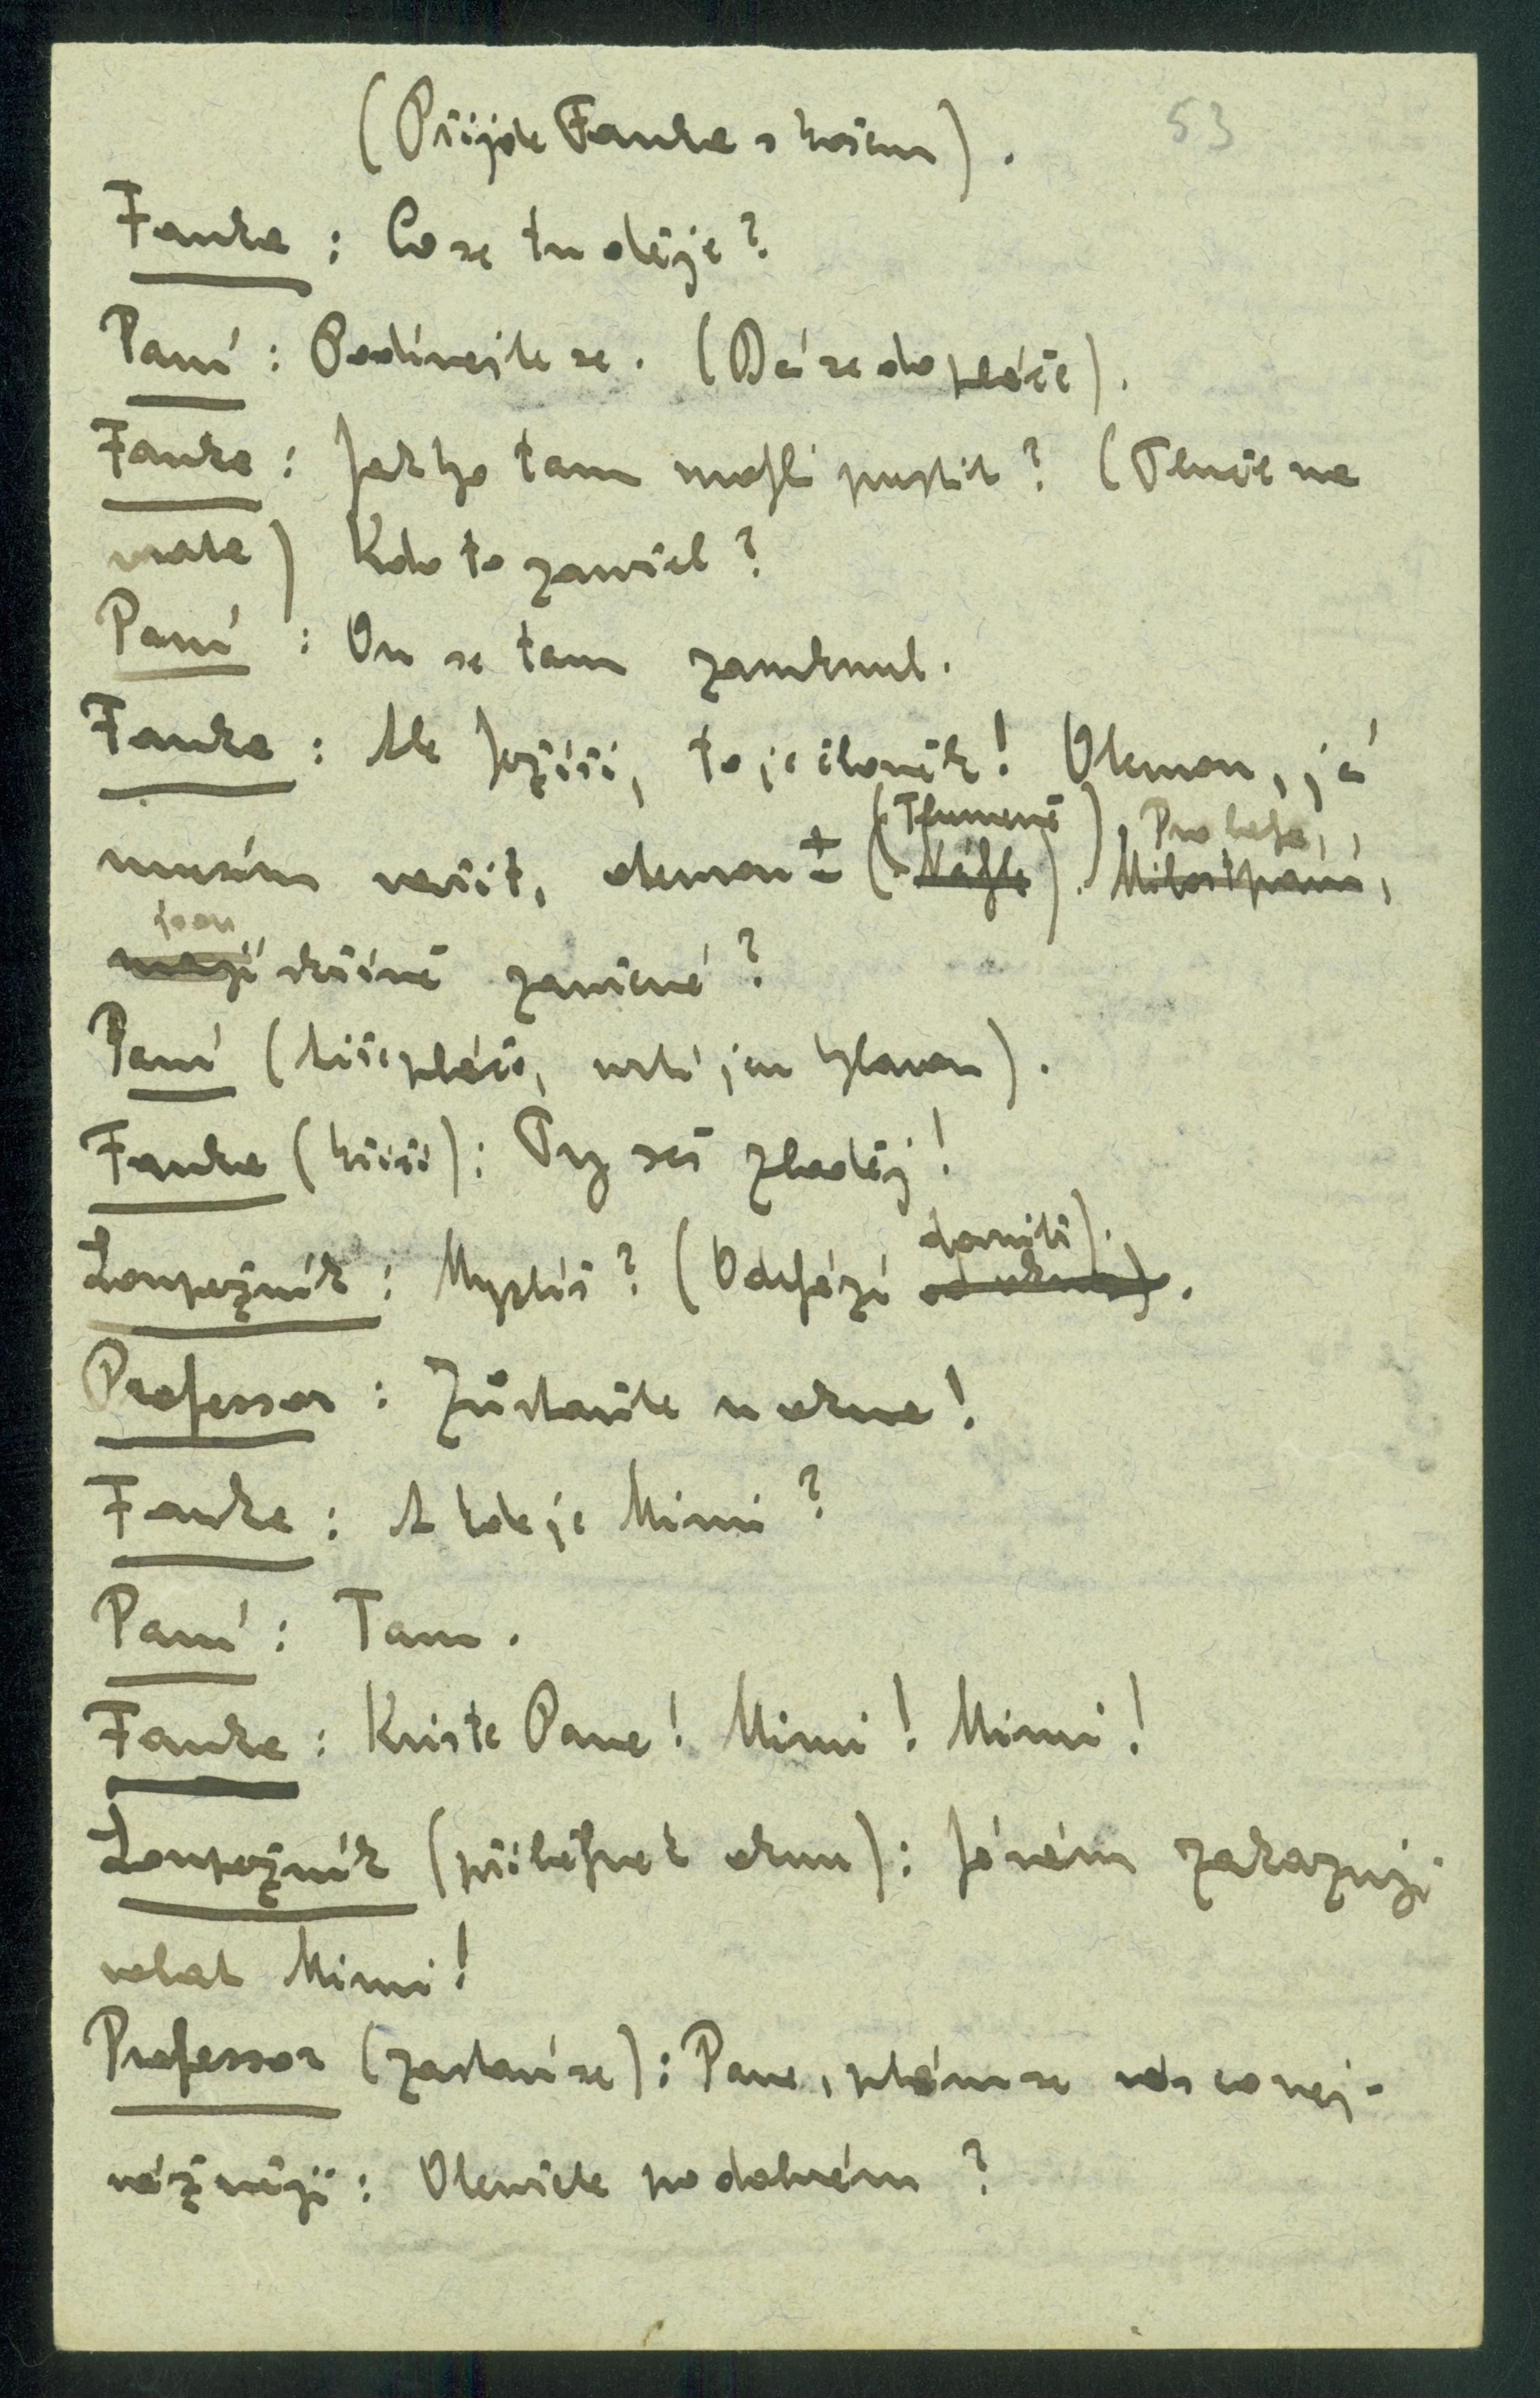 53
(Přijde Fanka s košem).
Fanka: Co se tu děje?
Paní: Podívejte se. (Dá se do pláče).
Fanka: Jak ho tam mohli pustit? (Tluče na
vrata) Kdo to zavřel?
Paní: On se tam zamknul.
Fanka: Ale Ježíši, to je člověk! Otevrou, já
(Tlumeně). Pro boha,
musím vařit, otevrou! (Náhle). Milostpaní,
jsou
mají skříně zavřené?
Paní (tiše pláče, vrtí jen hlavou).
Fanka (křičí): Ty seš zloděj!
dovnitř).
Loupežník: Myslíš? (Odchází od okna).
Professor: Zůstaňte u okna!
Fanka: A kde je Mimi?
Paní: Tam.
Fanka: Kriste Pane! Mimi! Mimi!
Loupežník (přiběhne k oknu): Já vám zakazuji
volat Mimi!
Professor (zastaví se): Pane, ptám se vás co nej-
vážněji: Otevřete po dobrém?